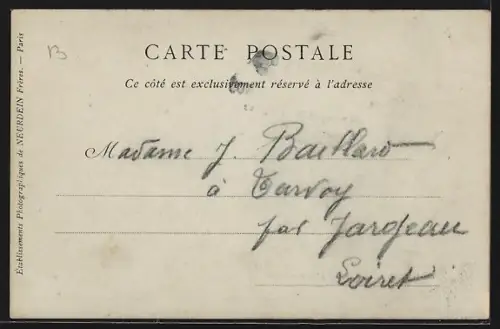 B
CARTE POSTALE
Ce côté est exclusivement réservé à l'adresse
Madame J. Baillard
à Darvoy
par Jargeau
Loiret
Etablissements Photographiques de NEURDEIN Frères. — Paris